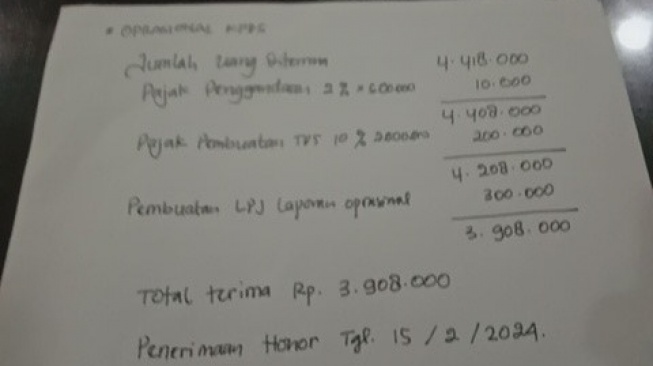 * OPRASIONAL KPPS
Jumlah uang diterima 4.418.000
Pajak Penggandaan 2% × 600000 10.000
4.408.000
Pajak Pembuatan TPS 10% 2000000 200.000
4.208.000
Pembuatan LPJ Laporan oprasional 300.000
3.908.000
Total terima Rp. 3.908.000
Penerimaan Honor Tgl. 15/2/2024.